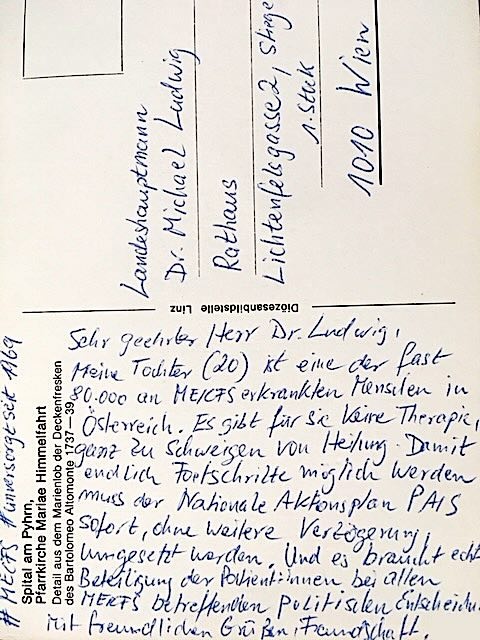 Landeshauptmann
Dr. Michael Ludwig
Rathaus
Lichtenfelsgasse 2, Stiege
1. Stock
1010 Wien
Diözesanbildstelle Linz
Sehr geehrter Herr Dr. Ludwig,
Meine Tochter (20) ist eine der fast
80.000 an ME/CFS erkrankten Menschen in
Österreich. Es gibt für sie keine Therapie,
ganz zu Schweigen von Heilung. Damit
endlich Fortschritte möglich werden
muss der Nationale Aktionsplan PAIS
sofort, ohne weitere Verzögerung,
umgesetzt werden. Und es braucht echte
Beteiligung der Patient:innen bei allen
ME/CFS betreffenden politischen
Mit freundlichen Grüßen,
Spital am Pyhrn,
Pfarrkirche Mariae Himmelfahrt
Detail aus dem Marienlob der Deckenfresken
des Bartolomeo Altomonte 1737—39
# MECFS #unversorgt seit 1969